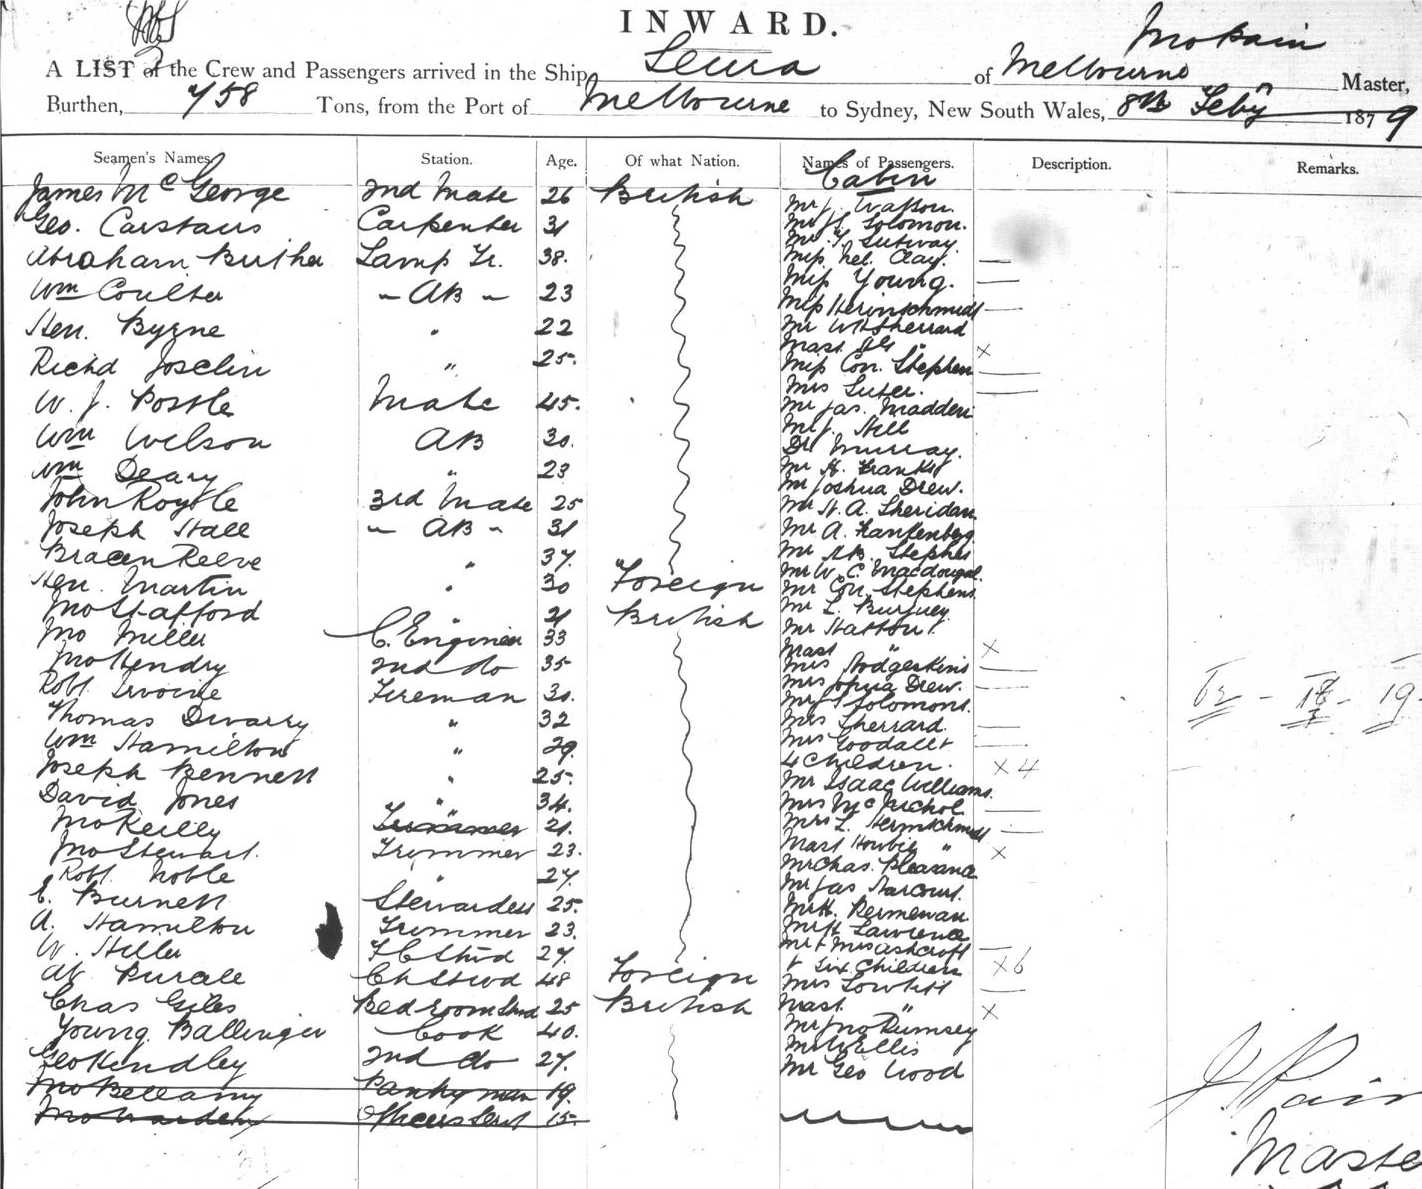 INWARD.
Jno Pain
A LIST of the Crew and Passengers arrived in the Ship Leura of Melbourne Master,
Burthen, 758 Tons, from the Port of Melbourne to Sydney, New South Wales, 8th Feby 1879
Seamen's Names Station. Age. Of what Nation. Names of Passengers. Description. Remarks.
Cabin
James McGeorge 2nd Mate 26 British
Geo. Carstairs Carpenter 31
Abraham Lamp Tr. 38.
Wm Coulter " AB " 23
Hen. Byrne " 22
Richd Joselin " 25.
W. J. Postle Mate 45.
Wm Wilson AB 30.
Wm Deary " 23
John Royle 3rd Mate 25
Joseph Hall " AB " 31
Reeve " 37.
Hen. Martin " 30 Foreign
Jno Stafford " 21 British
Jno Miller C. Engineer 33
Jno Hendry 2nd do 35
Robt. Fireman 30.
Thomas " 32
Wm Hamilton " 29.
Joseph Bennett " 25.
David Jones " 34.
Jno Reilly Trimmer 21.
Jno Stewart. Trimmer 23.
Robt Noble " 27.
E. Burnett Stewardess 25.
A. Hamilton Trimmer 23.
W. Hiller 27.
Ch Stwd 48 Foreign
Chas Giles Bedroom Stwd 25 British
Young Ballinger Cook 40.
Geo Hendley 2nd do 27.
Jno Bellamy Pantryman 19.
Officers Servt 15.
Mr J.
Mr H. Solomon.
Mr
Miss Nel. Clay.
Miss Young.
Miss Hermschmidt
Mr W H Sherrard
Mast "
Miss Con. Stephen
Mrs
Mr Jas. Madden
Mr J. Hill
Dr Murray.
Mr H. Franks
Mr Joshua Drew.
Mr H. A. Sheridan
Mr A. Frankenberg
Mr Stephen
Mr W. C. Macdougal.
Mr Con. Stephens.
Mr L.
Mr Hatton.
Mast "
Mrs Hodgerkins
Mrs Joshua Drew.
Mrs Solomons.
Mrs Sherrard
Mrs Goodall +
4 Children. x 4
Mr Isaac Williams.
Mrs McNichol
Mrs L. Hermschmidt
Mast "
Mr Chas. Pleasance
Mr Jas Harcourt.
Mr H.
Mr H Lawrence
Mr + Mrs Ashcroft
+ Six Children x 6
Mrs
Mast. "
Mr Jno Rumsey
Mr W Ellis
Mr Geo Wood
62 - 18 - 19.
J. Pain
Master